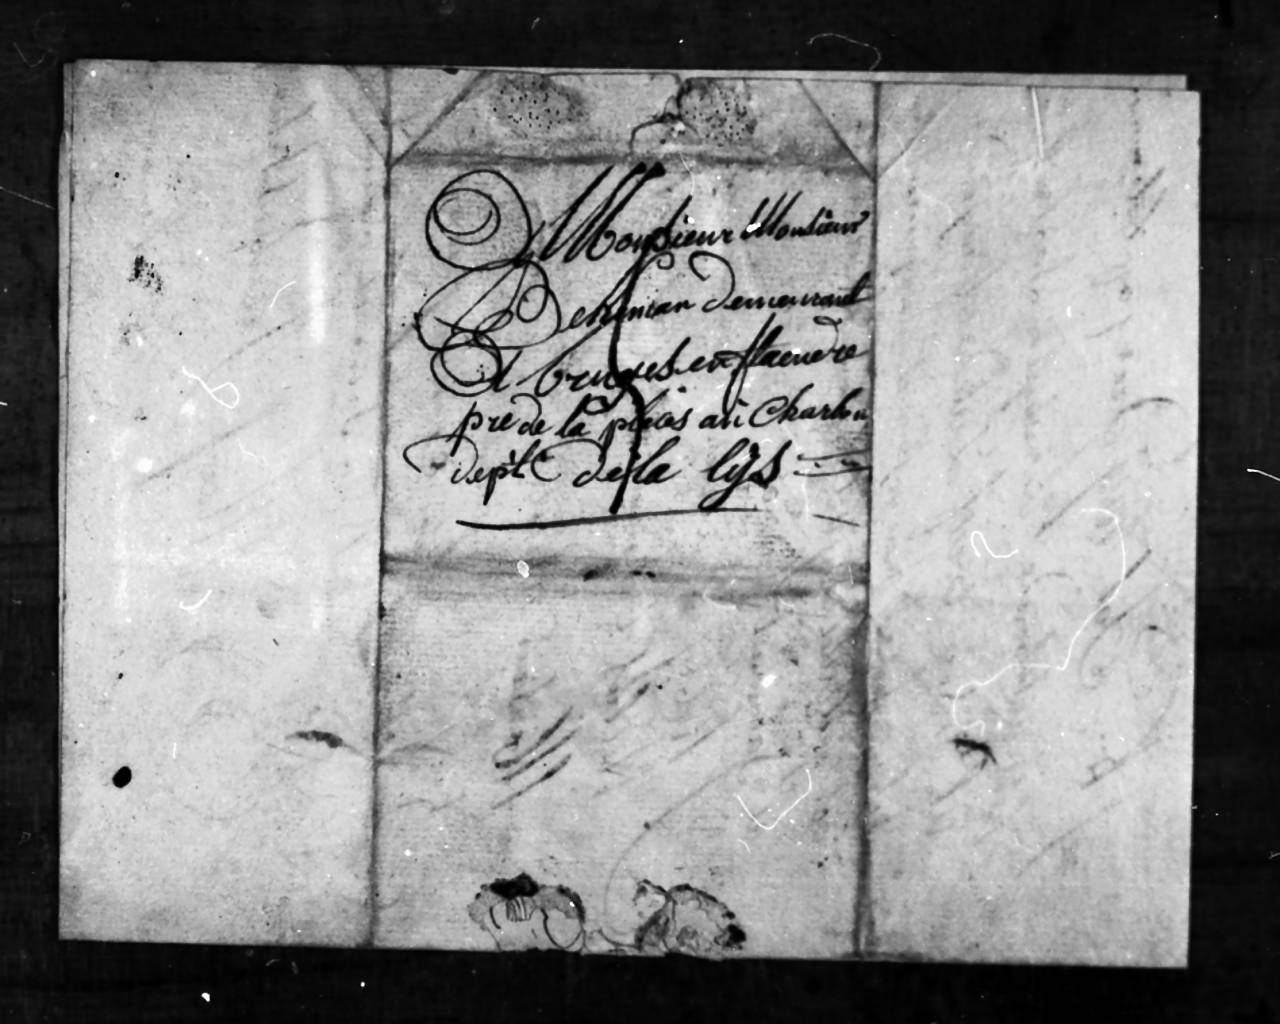 A Monsieur Monsieur
Beheman demeurant
A bruges en flaendre
pre de la places au Charbon
dept de la lijs